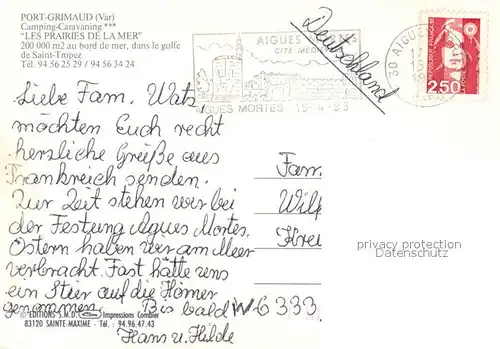 PORT-GRIMAUD (Var)
Camping-Caravaning ***
"LES PRAIRIES DE LA MER"
200.000 m2 au bord de mer, dans le golfe
de Saint-Tropez
Tél. 94 56 25 29 / 94 56 34 24
Deutschland
AIGUES
CITE MEDI
AIGUES MORTES 15-4-93
30 AIGUES
REPUBLIQUE FRANÇAISE
2,50
Liebe Fam. Watz,
möchten Euch recht
herzliche Grüße aus
Frankreich senden.
Zur Zeit stehen wir bei
der Festung Agues Mortes.
Ostern haben wir am Meer
verbracht. Fast hätte uns
ein Stier auf die Hörner
genommen. Bis bald
Hans u. Hilde
Fam.
Wilh
Krei
W6333
privacy protection
Datenschutz
© EDITIONS S.M.D. Impressions Combier
83120 SAINTE-MAXIME - Tél. : 94.96.47.43